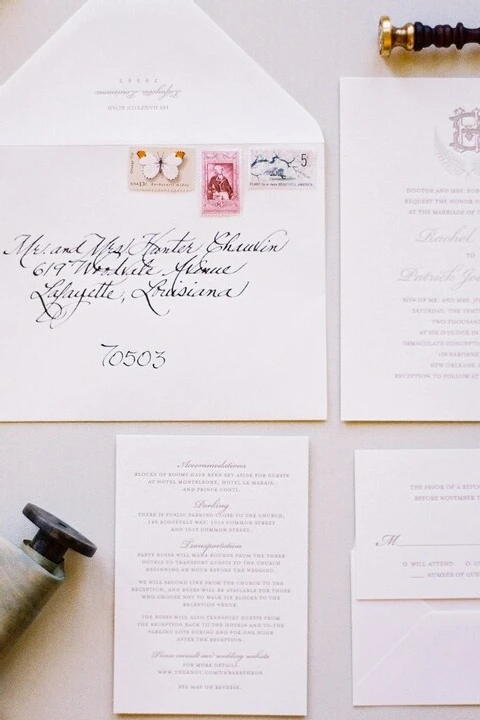 Lafayette, Louisiana
70503
USA 13c
5c
PLANT for a more BEAUTIFUL AMERICA
Mr. and Mrs. Hunter Chauvin
619 Woodvale Avenue
Lafayette, Louisiana
70503
DOCTOR AND MRS. ROB
REQUEST THE HONOR O
AT THE MARRIAGE OF T
Rachel
TO
Patrick Jo
SON OF MR. AND MRS. J
SATURDAY, THE TENT
TWO THOUSAND
AT SIX O'CLOCK IN
IMMACULATE CONCEPTIO
130 BARONNE
NEW ORLEANS,
RECEPTION TO FOLLOW AT
Accommodations
BLOCKS OF ROOMS HAVE BEEN SET ASIDE FOR GUESTS
AT HOTEL MONTELEONE, HOTEL LE MARAIS,
AND PRINCE CONTI.
Parking
THERE IS PUBLIC PARKING CLOSE TO THE CHURCH,
ROOSEVELT WAY, COMMON STREET
AND COMMON STREET.
Transportation
PARTY BUSES WILL MAKE ROUNDS FROM THE THREE
HOTELS TO TRANSPORT GUESTS TO THE CHURCH
BEGINNING AN HOUR BEFORE THE WEDDING.
WE WILL SECOND LINE FROM THE CHURCH TO THE
RECEPTION, AND BUSES WILL BE AVAILABLE FOR THOSE
WHO CHOOSE NOT TO WALK SIX BLOCKS TO THE
RECEPTION VENUE.
THE BUSES WILL ALSO TRANSPORT GUESTS FROM THE
RECEPTION BACK TO THE HOTELS AND TO THE
PARKING LOTS DURING AND FOR ONE HOUR
AFTER THE RECEPTION.
Please consult our wedding website
FOR MORE DETAILS.
SEE MAP ON REVERSE.
THE FAVOR OF A REPL
BEFORE NOVEMBER T
M
WILL ATTEND
NUMBER OF GUE